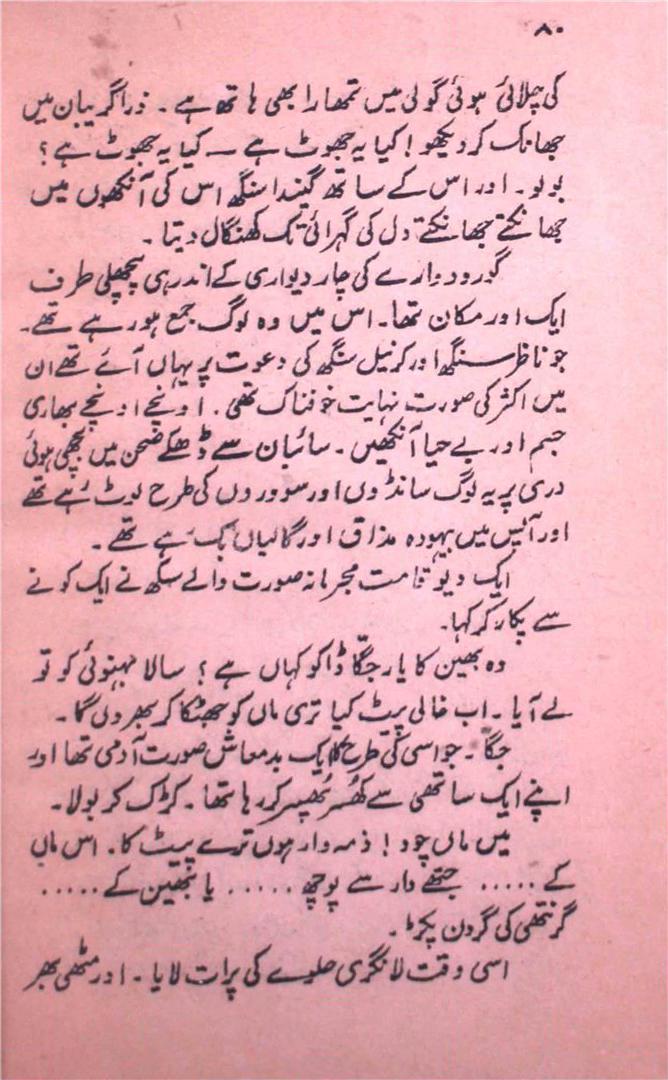 ۸۰
کی چلائی ہوئی گولی میں تمھارا بھی ہاتھ ہے۔ ذرا گریبان میں
جھانک کر دیکھو! کیا یہ جھوٹ ہے — کیا یہ جھوٹ ہے؟
بولو۔ اور اس کے ساتھ گیندا سنگھ اس کی آنکھوں میں
جھانکتے جھانکتے دل کی گہرائی تک کھنگال دیتا۔
گورودوارے کی چار دیواری کے اندر ہی پچھلی طرف
ایک اور مکان تھا۔ اس میں وہ لوگ جمع ہو رہے تھے۔
جو ناظر سنگھ اور کرنیل سنگھ کی دعوت پر یہاں آئے تھے ان
میں اکثر کی صورت نہایت خوفناک تھی۔ اونچے اونچے بھاری
جسم اور بے حیا آنکھیں۔ سائبان سے ڈھکے صحن میں بچھی ہوئی
دری پر یہ لوگ سانڈوں اور سووروں کی طرح لوٹ رہے تھے
اور آپس میں بیہودہ مذاق اور گالیاں بک رہے تھے۔
ایک دیو قامت مجرمانہ صورت والے سکھ نے ایک کونے
سے پکار کر کہا۔
وہ بھین کا یار جگا ڈاکو کہاں ہے؟ سالا مہنوئی کو تو
لے آیا۔ اب خالی پیٹ کیا تری ماں کو جھٹکا کر بھر دوں گا۔
جگا۔ جو اسی کی طرح کا ایک بدمعاش صورت آدمی تھا اور
اپنے ایک ساتھی سے کھُسر پھُسر کر رہا تھا۔ کڑک کر بولا۔
میں ماں چود! ذمہ دار ہوں ترے پیٹ کا۔ اس ماں
کے ..... جتھے دار سے پوچھ ..... یا بھین کے .....
گرنتھی کی گردن پکڑ۔
اسی وقت لانگری حلیے کی پرات لایا۔ اور مٹھی بھر